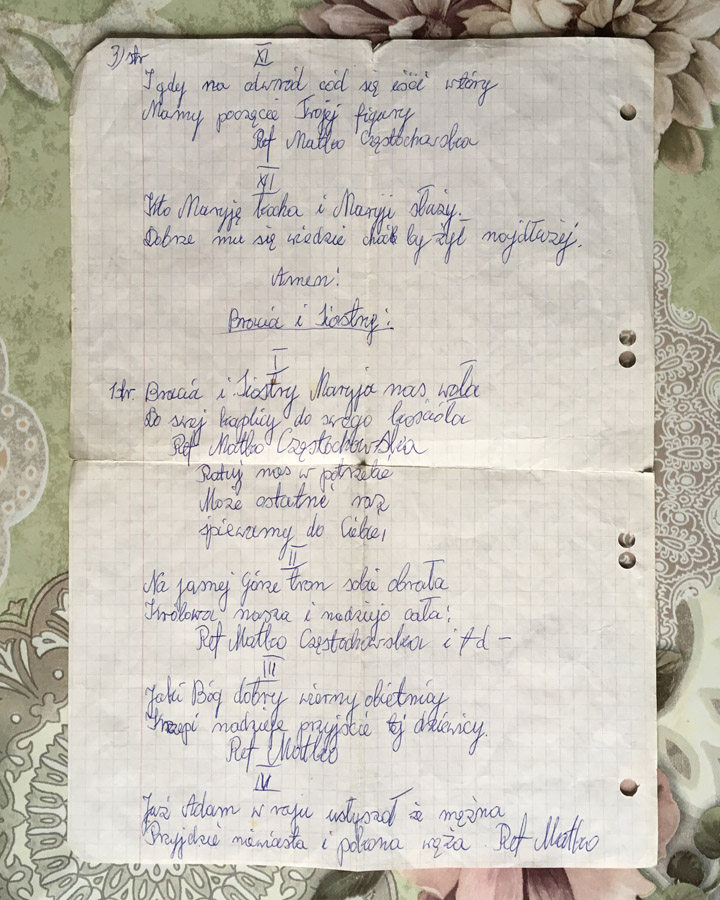 3) str XI
I gdy na odwród cód się iści wtóry
Mamy poczęcie Twojej figury
Ref Matko Częstochowska
XII
Kto Maryję kocha i Maryji służy.
Dobrze mu się wiedzie choć by żył najdłużej.
Amen!
Bracia i Siostry!
I
1 str. Bracia i Siostry Maryja nas woła
Do swej kaplicy do swego kościoła
Ref Matko Częstochowska
Ratuj nas w potrzebie
Może ostatni raz
śpiewamy do Ciebie,
II
Na jasnej Górze tron sobie obrała
Królowa nasza i nadzieja cała!
Ref Matko Częstochowska i td -
III
Jaki Bóg dobry wierny obietnicy
Krzepi nadzieję przyjście tej dziewicy.
Ref Matko
IV
Już Adam w raju usłyszał że mężna
Przyjdzie niewiasta i pokona węża Ref Matko